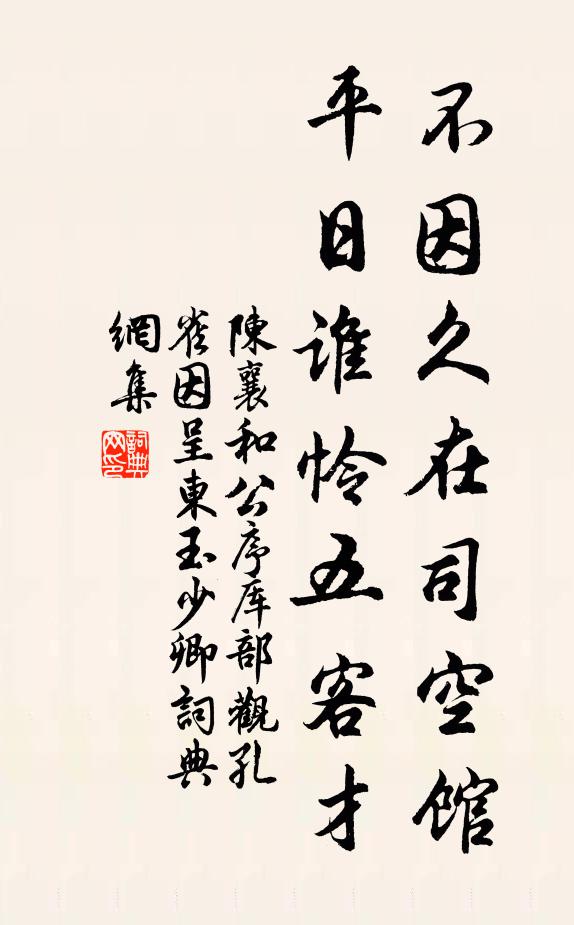 不因久在司空館
平日誰憐五客才
陳襄和公序库部觀孔
雀因呈東玉少卿詞典
網集
詞典網印